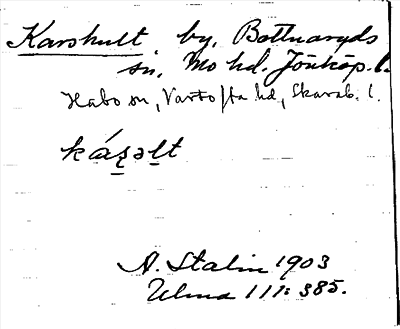 Karshult, by, Bottnaryds
sn, Mo hd. Jönköp. l.
Habo sn, Vartofta hd, Skarab. l.
A. Stalin 1903
Ulma 111: 385.